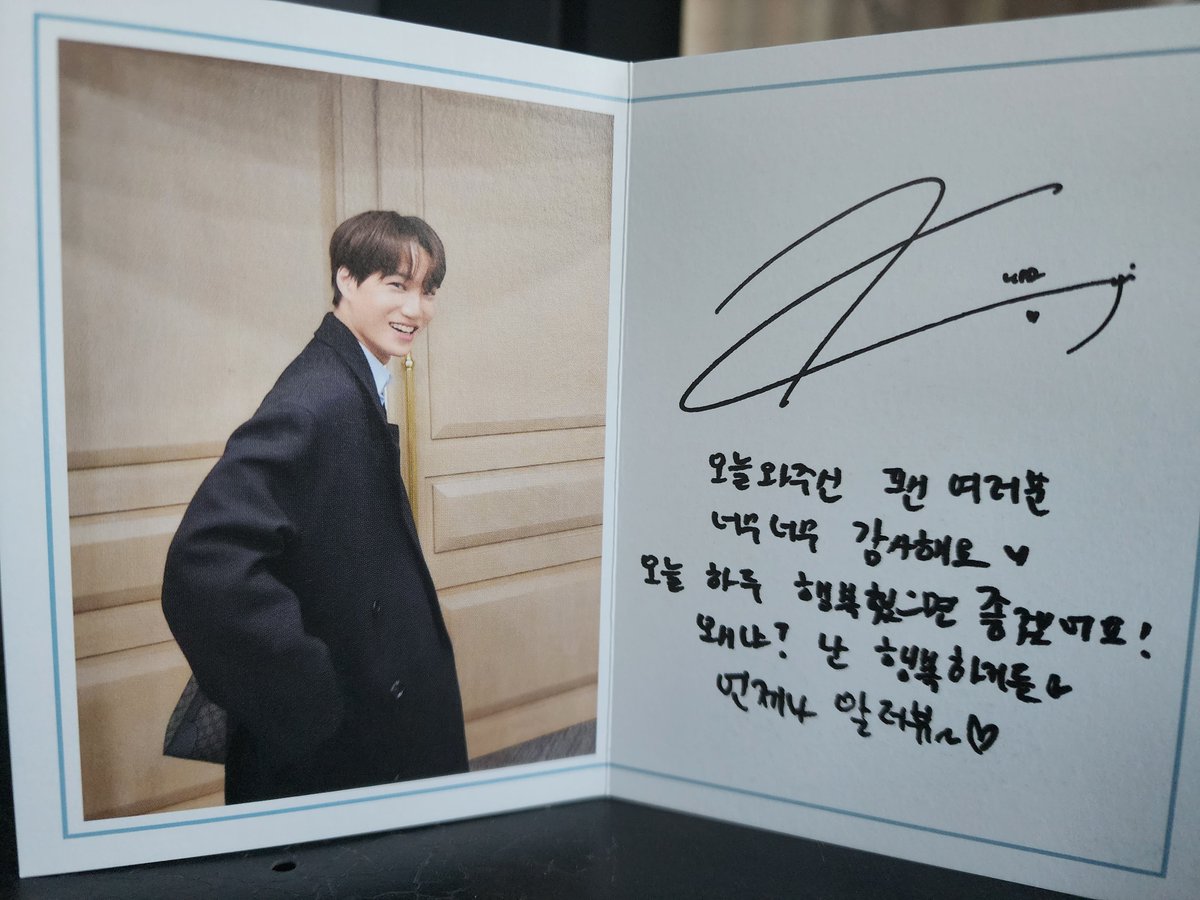 오늘 와주신 팬 여러분
너무너무 감사해요
오늘 하루 행복했으면 좋겠어요!
왜냐? 난 행복하거든
언제나 알러뷰~